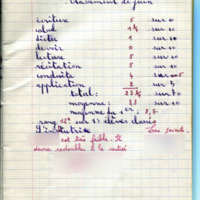 Classement de Juin
écriture 5 sur 10
calcul 1 ½ sur 10
dictée 1 sur 10
devoir 0 sur 10
lecture 5 sur 10
récitation 5 sur 10
conduite 4 sur 5
application 2 sur 5
total: 23 ½ sur 70
moyenne: 3,3 sur 10
moyenne du 1er: 8,7
rang 12e sur 13 élèves classés
L'institutrice
est très faible. Il
devra redoubler à la rentrée